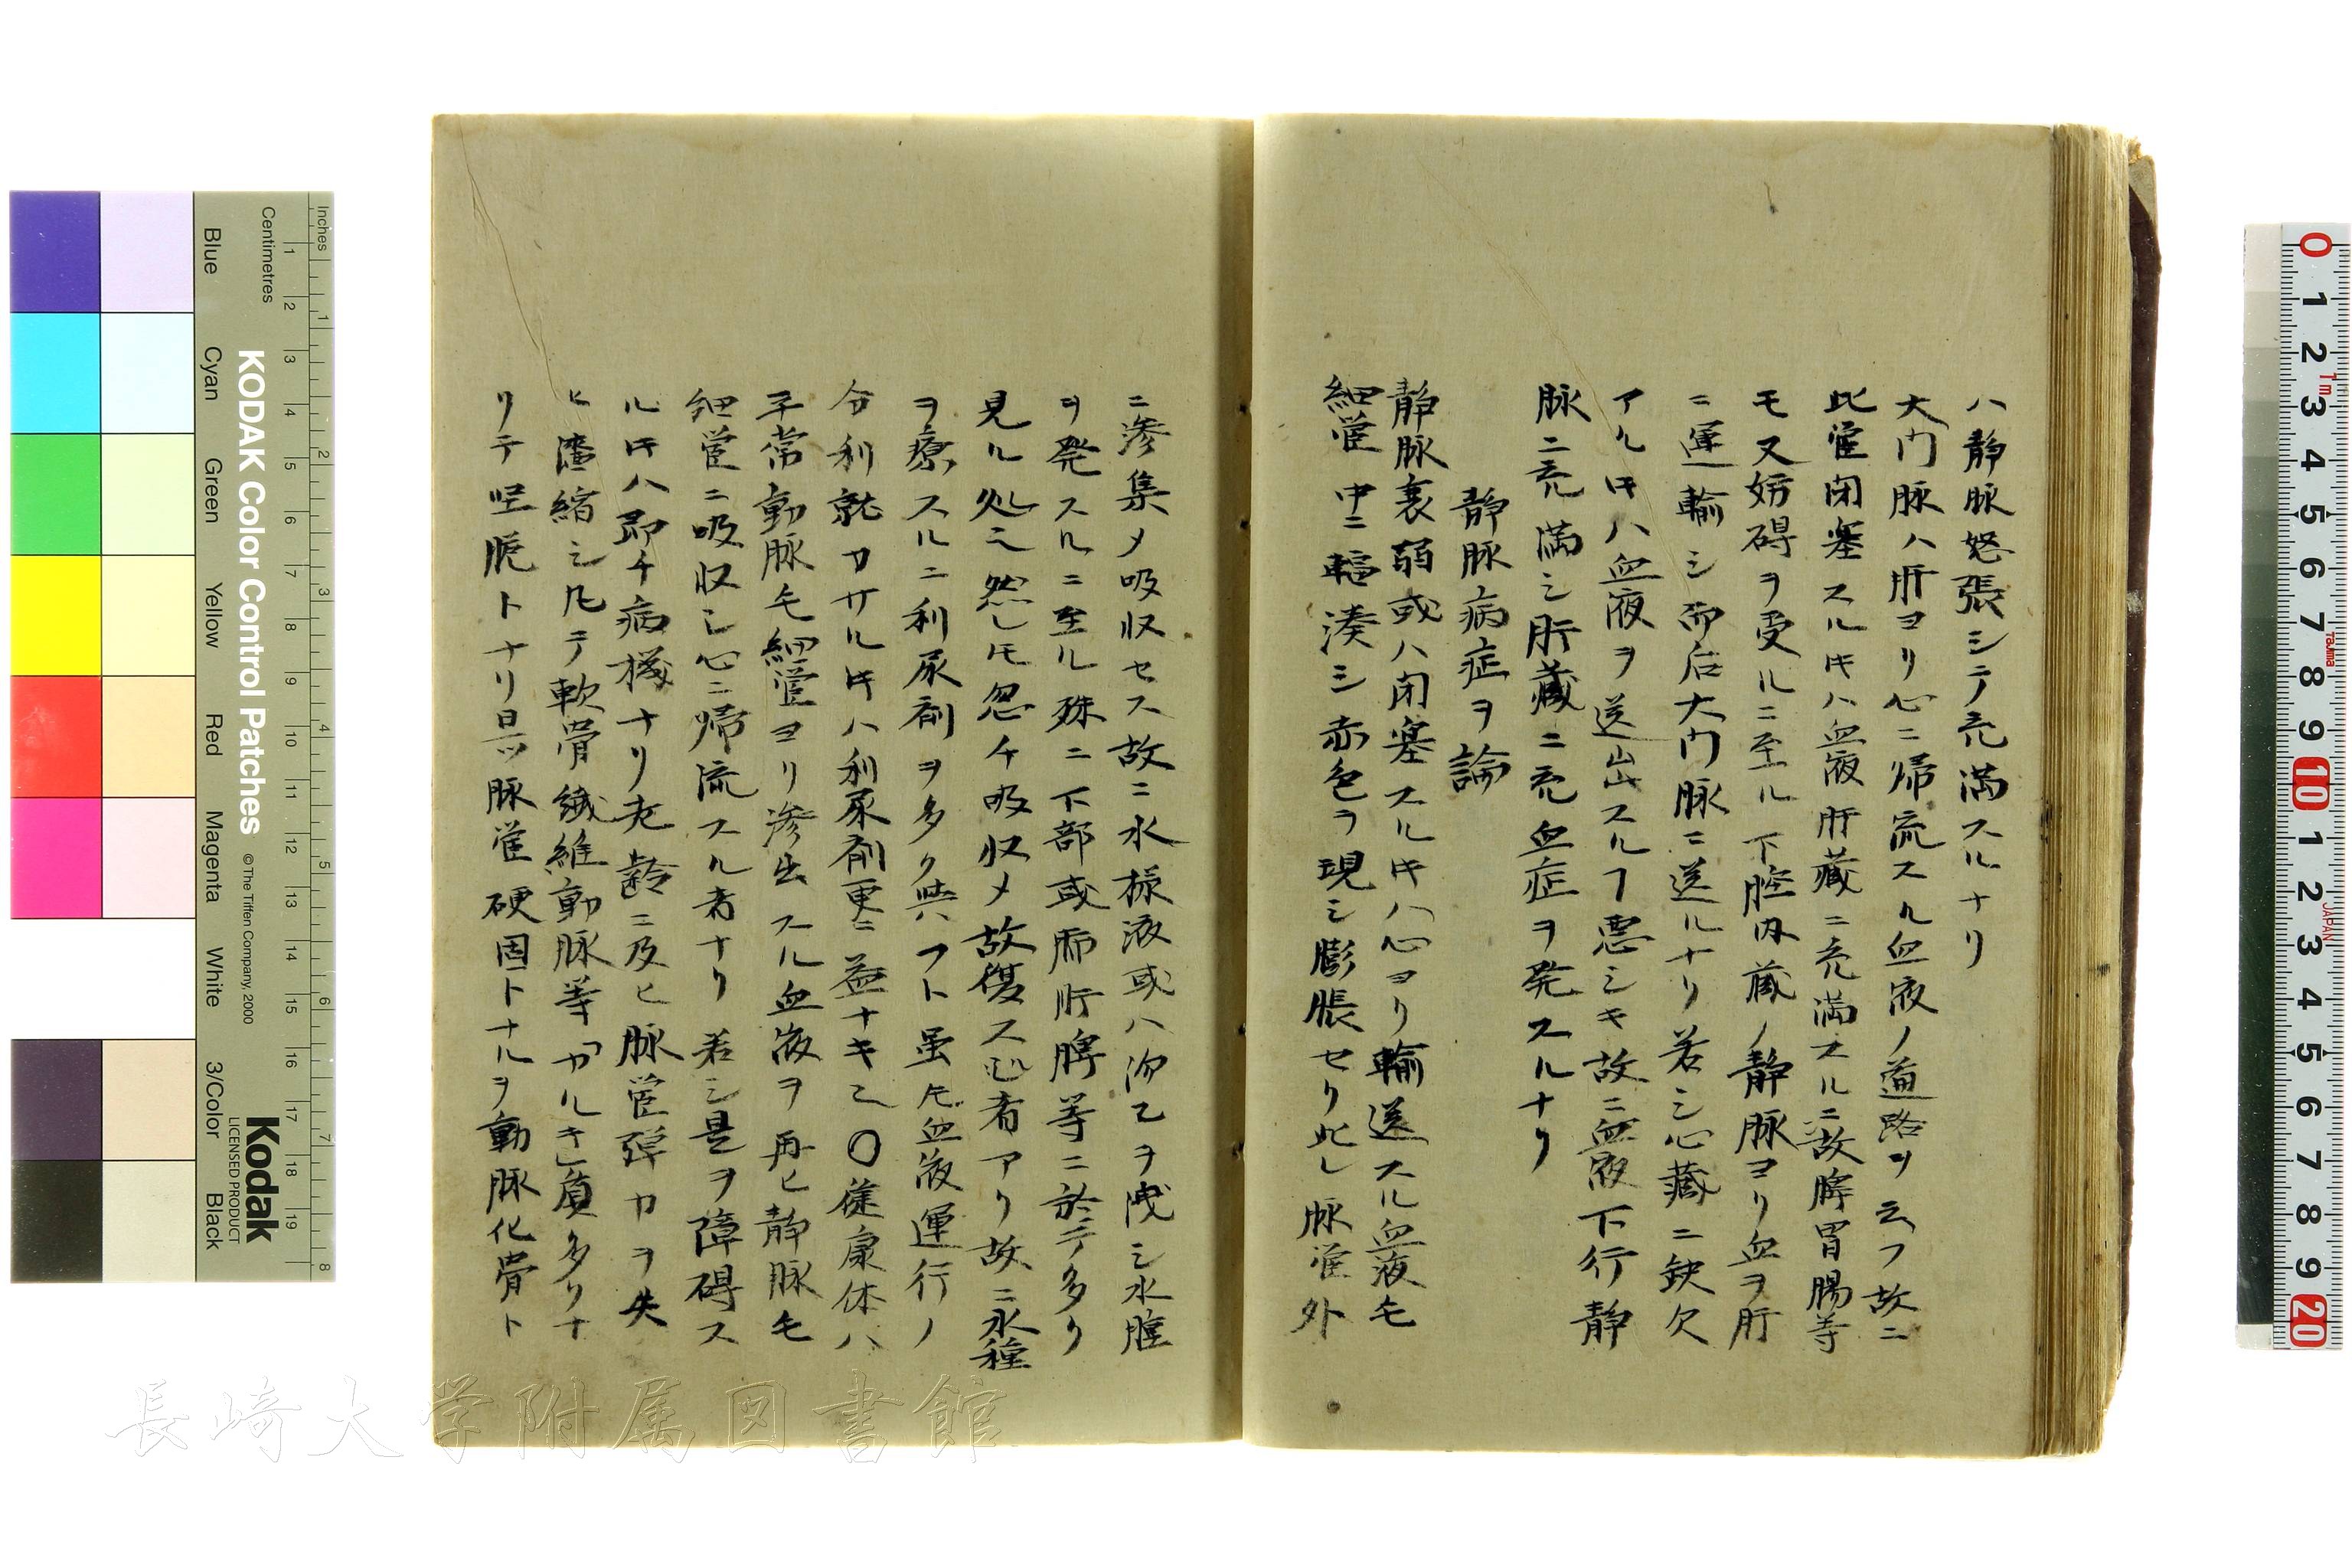 ハ静脉怒張シテ充満スルナリ
大門脉ハ肝ヨリ心ニ帰流スル血液ノ道路ヲ云フ故ニ
此管閉塞スル𪜈ハ血液肝蔵ニ充満スル故ニ脾胃腸等
モ又妨碍ヲ受ルニ至ル下腔内蔵ノ静脉ヨリ血ヲ肝
ニ運輸シ而后大門脉ニ送ルナリ若シ心蔵ニ欽欠
アル𪜈ハ血液ヲ送出スルヿ悪シキ故ニ血液下行静
脉ニ充満シ肝蔵ニ充血症ヲ発スルナリ
静脉病症ヲ論
静脉衰弱或ハ閉塞スル𪜈ハ心ヨリ輸送スル血液毛
細管中ニ輻湊シ赤色ヲ現シ膨脹セリ此レ脉管外
ニ滲集メ吸収セス故ニ水様液或ハ汾乙ヲ洩シ水腫
ヲ発スルニ至ル殊ニ下部或肺肝脾等ニ於テ多リ
見ル処ニ然レ𪜈忽チ吸収メ故復ス必者アリ故ニ水種
ヲ療スルニ利尿剤ヲ多ク与ハフト虽𪜈血液運行ノ
分利就カサル𪜈ハ利尿剤更ニ益ナキ乙〇健康体ハ
平常動脉毛細管ヨリ滲出スル血液ヲ再ヒ静脉毛
細管ニ吸収シ心ニ帰流スル者ナリ若シ是ヲ障碍ス
ル𪜈ハ即チ病機ナリ老齢ニ及ヒ脉管弾力ヲ失
ヒ漕縮シ凡テ軟骨繊維動脉等「カルキ」質多リナ
リテ坚脆トナリ且ツ脉管硬固トナルヲ動脉化骨ト
Inches
Centimetres
KODAK Color Control Patches
© The Tiffen Company, 2000
Kodak
LICENSED PRODUCT
Blue
Cyan
Green
Yellow
Red
Magenta
White
3/Color
Black
長崎大学附属図書館